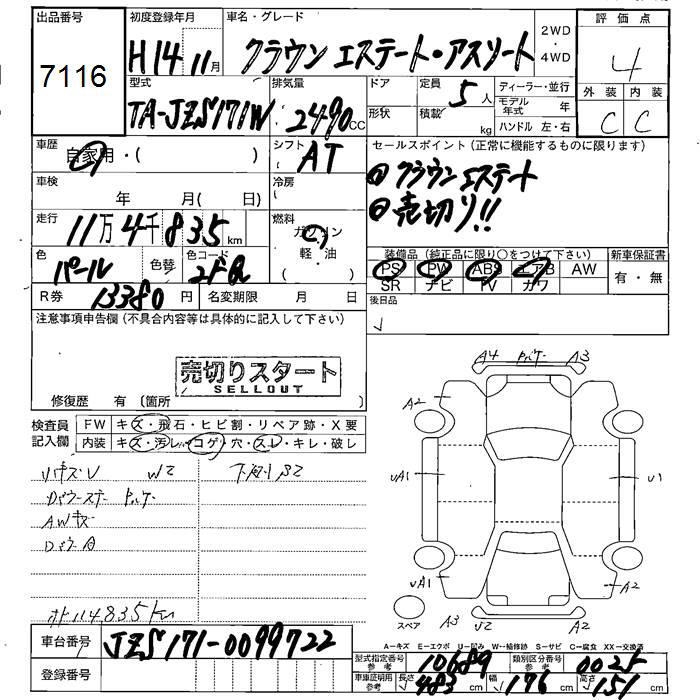 出品番号
7116
初度登録年月
H14 11月
車名・グレード
クラウン エステート・アスリート
2WD・4WD
評価点
4
外装 内装
C C
型式
TA-JZS171W
排気量
2490cc
ドア
形状
定員
5人
積載
kg
ディーラー・並行
モデル年式 年
ハンドル 左・右
車歴
自家用・( )
シフト
AT
( )
セールスポイント(正常に機能するものに限ります)
クラウン エステート
売切り!!
車検
年 月( 日)
冷房
走行
11万4千835km
燃料
ガソリン
軽・油
( )
色
パール
色替
色コード
装備品(純正品に限り○をつけて下さい)
PS PW ABS エアB AW
SR ナビ TV カワ
新車保証書
有・無
R券
13380円
名変期限 月 日
後日品
注意事項申告欄(不具合内容等は具体的に記入して下さい)
売切りスタート
SELLOUT
修復歴 有(箇所 )
検査員記入欄
FW キズ・飛石・ヒビ割・リペア跡・X要
内装 キズ・汚レ・コゲ・穴・スレ・キレ・破レ
W2
AWキズ
114835km
A4 A3
A2
uA1 U1
uA1 A2
スペア A3 U2 A2
A−キズ E−エクボ U−凹み W−補修跡 S−サビ C−腐食 XX−交換済
車台番号
JZS171-0099722
登録番号
型式指定番号 参考
10689
類別区分番号 参考
車庫証明用 参考
長さ 483cm
幅 176cm
高さ 151cm